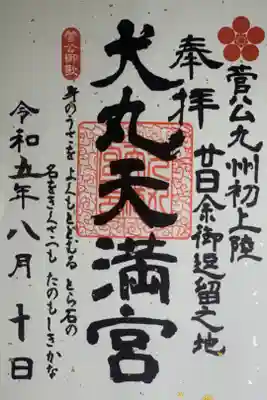 菅公九州初上陸
廿日余御逗留之地
奉拝
犬丸天満宮
菅公御歌
身のうせを とどむる とら石の
名をきくさへも たのもしきかな
令和五年八月十日